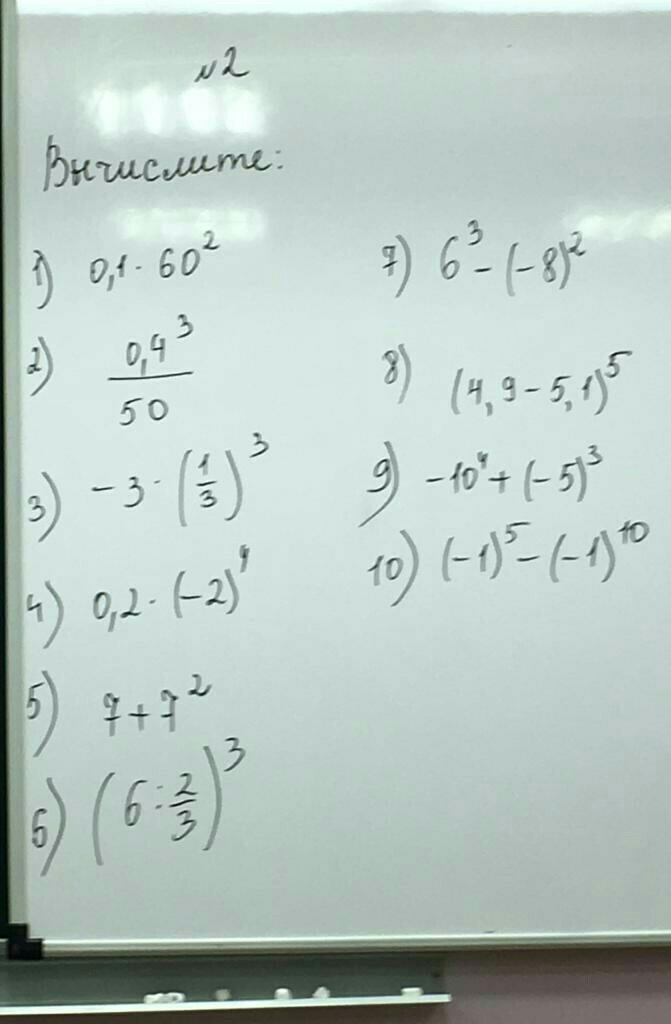 №2
Вычислите:
1) 0,1 · 60²
2) 0,4³/50
3) -3 · (1/3)³
4) 0,2 · (-2)⁴
5) 7 + 7²
6) (6 : 2/3)³
7) 6³ - (-8)²
8) (4,9 - 5,1)⁵
9) -10⁴ + (-5)³
10) (-1)⁵ - (-1)¹⁰